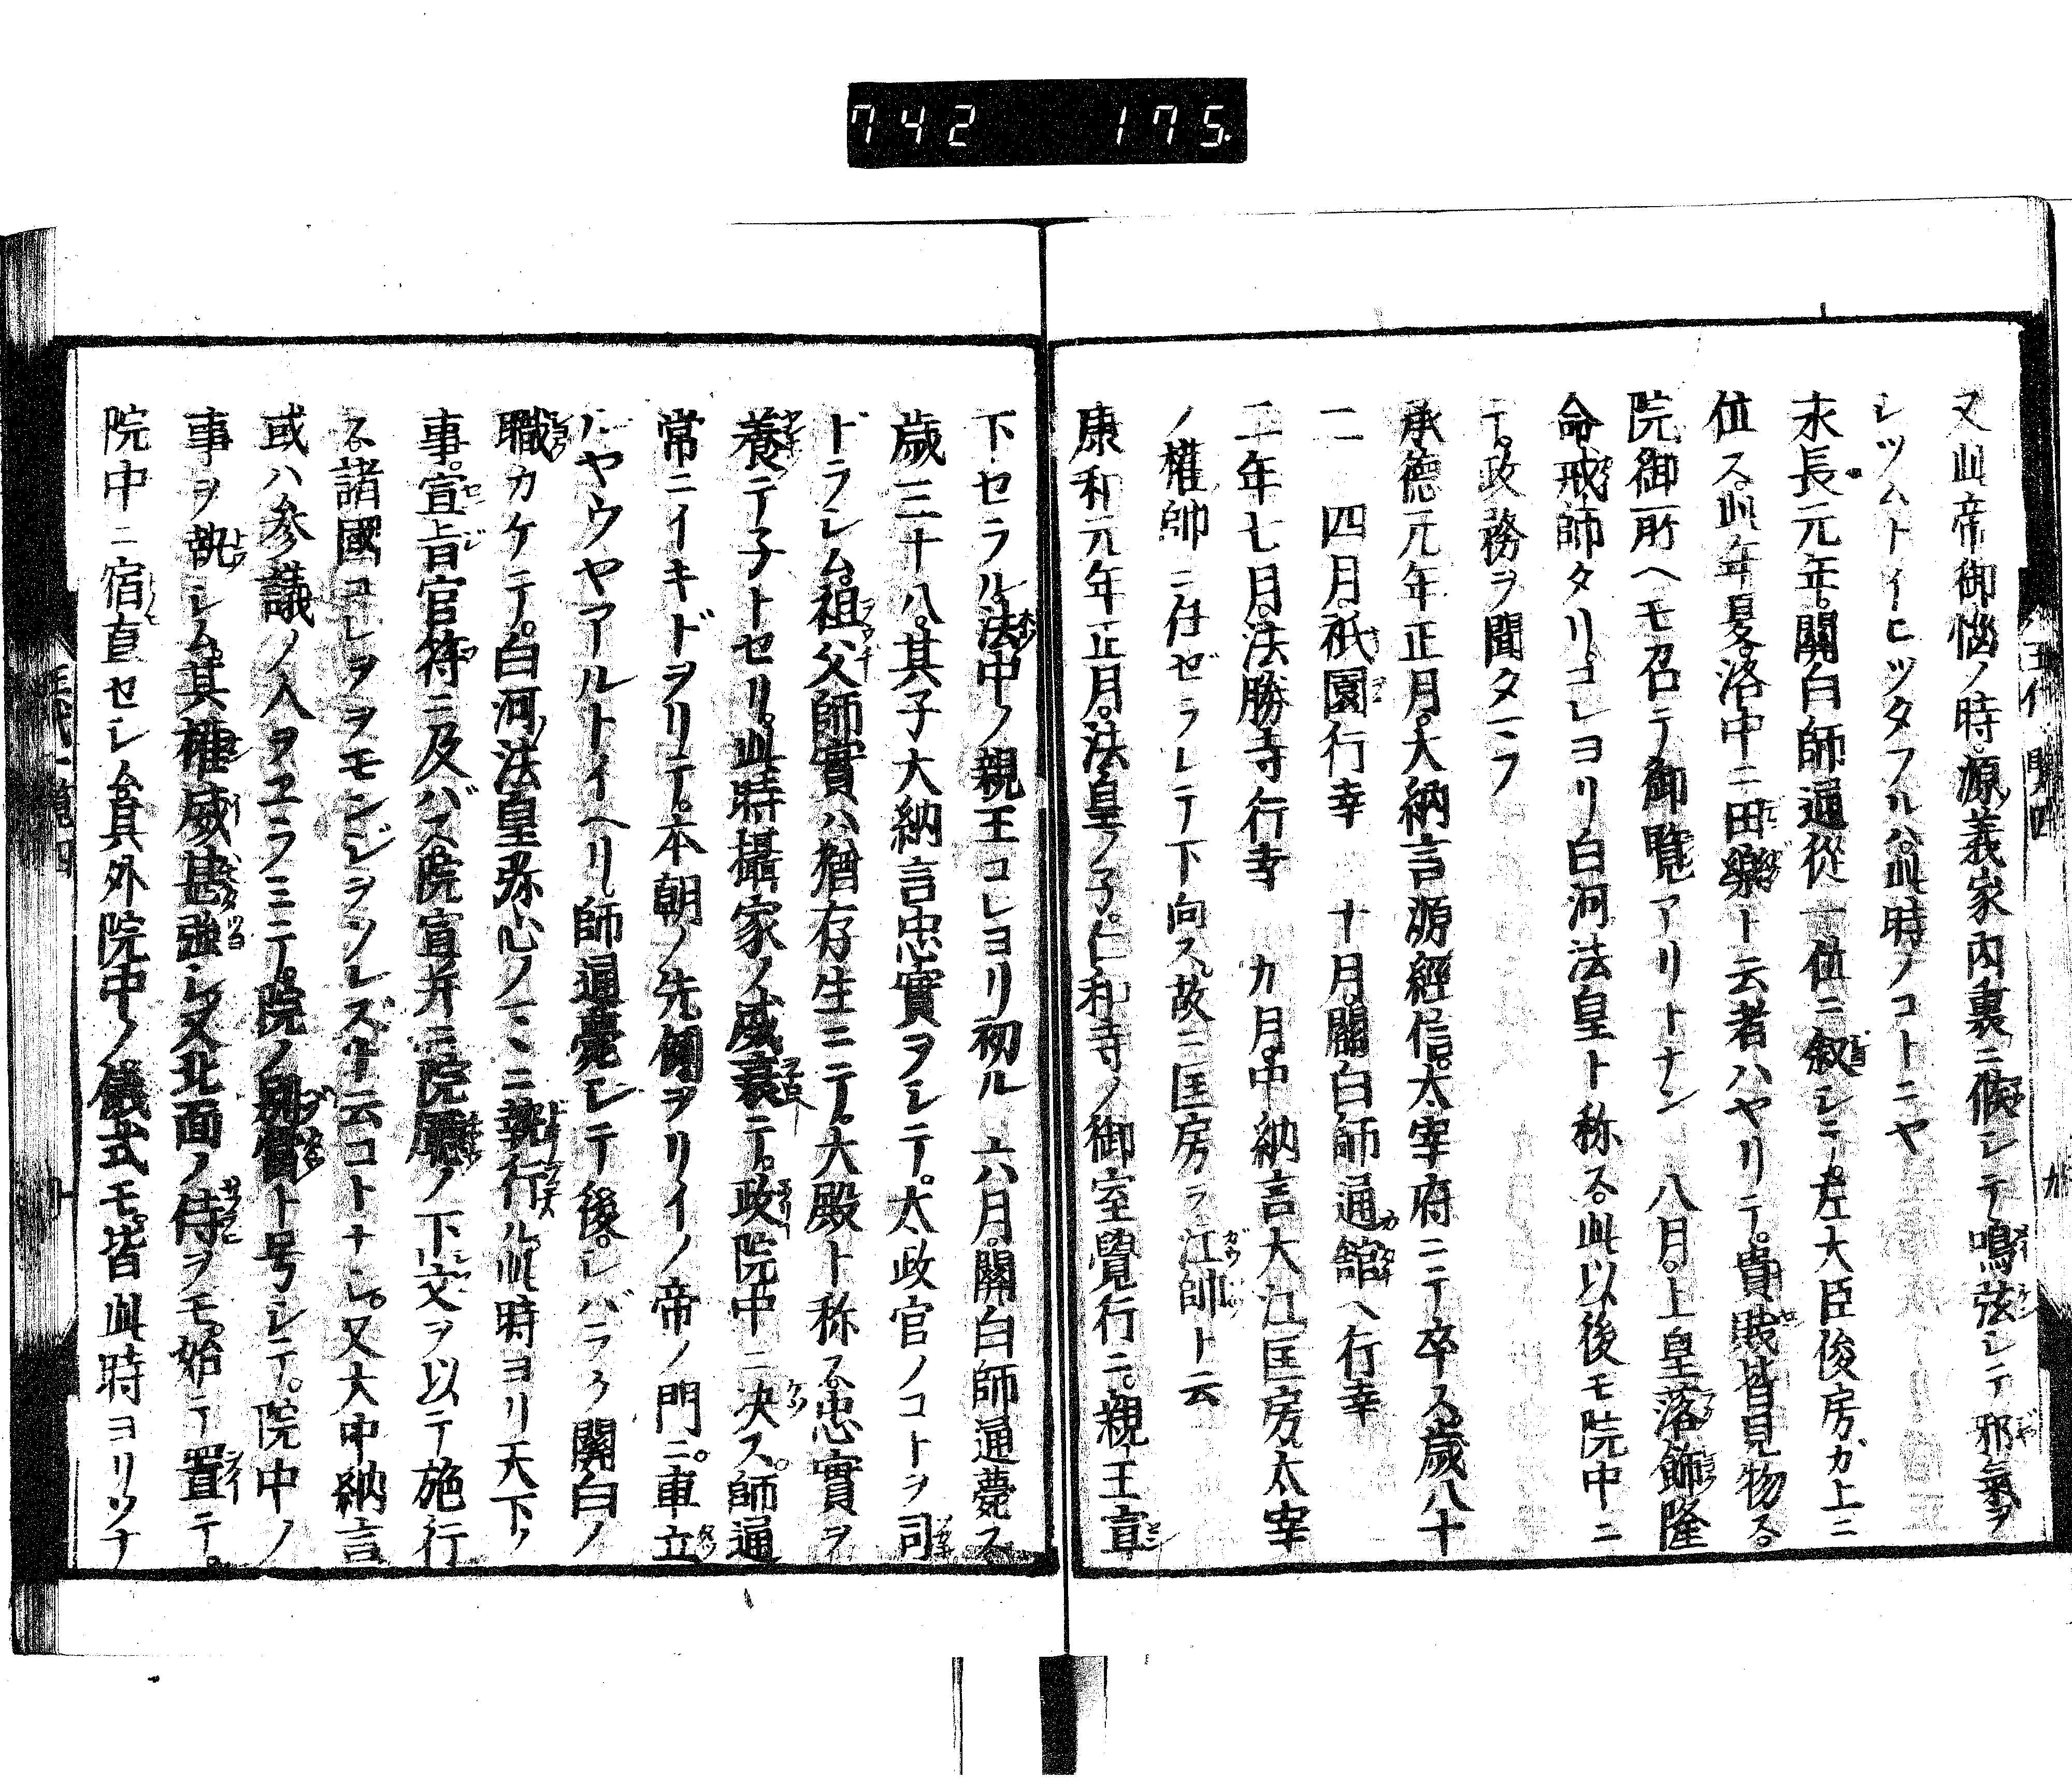 742 175
又此帝御惱ノ時源義家内裏ニ候シテ鳴弦シテ邪氣ヲ
シツムトイヒツタフルハ此時ノコトニヤ
永長元年關白師通從一位ニ叙シテ左大臣俊房ガ上ニ
位ス此年夏洛中ニ田樂ト云者ハヤリテ貴賤皆見物ス
院御所ヘモ召テ御覽アリトナン 八月上皇落飾隆
命戒師タリコレヨリ白河法皇ト称ス此以後モ院中ニ
テ政務ヲ聞タマフ
承德元年正月大納言源經信太宰府ニテ卒ス歲八十
二 四月祇園行幸 十月關白師通舘ヘ行幸
二年七月法勝寺行幸 九月中納言大江匡房太宰
ノ權帥ニ任ゼラレテ下向ス故ニ匡房ヲ江帥ト云
康和元年正月法皇ノ子仁和寺ノ御室覺行ニ親王宣
下セラル法中ノ親王コレヨリ初ル 六月關白師通薨ス
歲三十八其子大納言忠實ヲシテ太政官ノコトヲ司
ドラシム祖父師實ハ猶存生ニテ大殿ト称ス忠實ヲ
養テ子トセリ此時攝家ノ威衰テ政院中ニ決ス師通
常ニイキドヲリテ本朝ノ先例ヲリイノ帝ノ門ニ車立
ルヤウヤアルトイヘリ師通薨シテ後シバラク關白ノ
職カケテ白河法皇弥心ノマヽニ執行ル此時ヨリ天下ノ
事宣旨官符ニ及バス院宣并ニ院廳ノ下文ヲ以テ施行
ス諸國コレヲヲモンジヲソレズト云コトナシ又大中納言
或ハ參議ノ人ヲヱラミテ院ノ別當ト号シテ院中ノ
事ヲ執シム其權威甚強シ又北面ノ侍ヲモ始テ置テ
院中ニ宿直セシム其外院中ノ儀式モ皆此時ヨリソナ